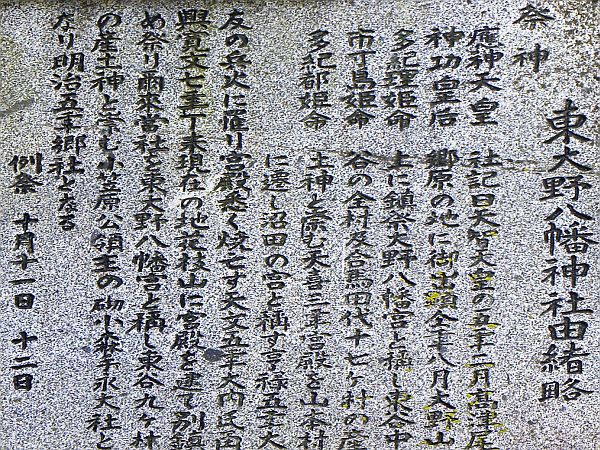 東大野八幡神社由緒略
祭神
應神天皇　社記曰天智天皇の五年二月高津尾
神功皇后　郷原の地に御出顕仝年八月大野山
多紀理姫命　上に鎮祭大野八幡宮と稱し東谷中
市寸島姫命　谷の全村及合馬田代十七ヶ村の産
多紀都姫命　土神と崇む天喜三年宮殿を山本村
に遷し沼田の宮と稱す享禄五年大
友の兵火に罹り宮殿悉く焼亡す天文五年大内氏田
興寛文七年丁未現在の地花枝山に宮殿を建て別鎮
め祭り爾來當社を東大野八幡宮と稱し東谷九ヶ村
の産土神と崇む小笠原公領主の砌小森字永大社と
なり明治五年郷社となる
例祭　十月十一日　十二日